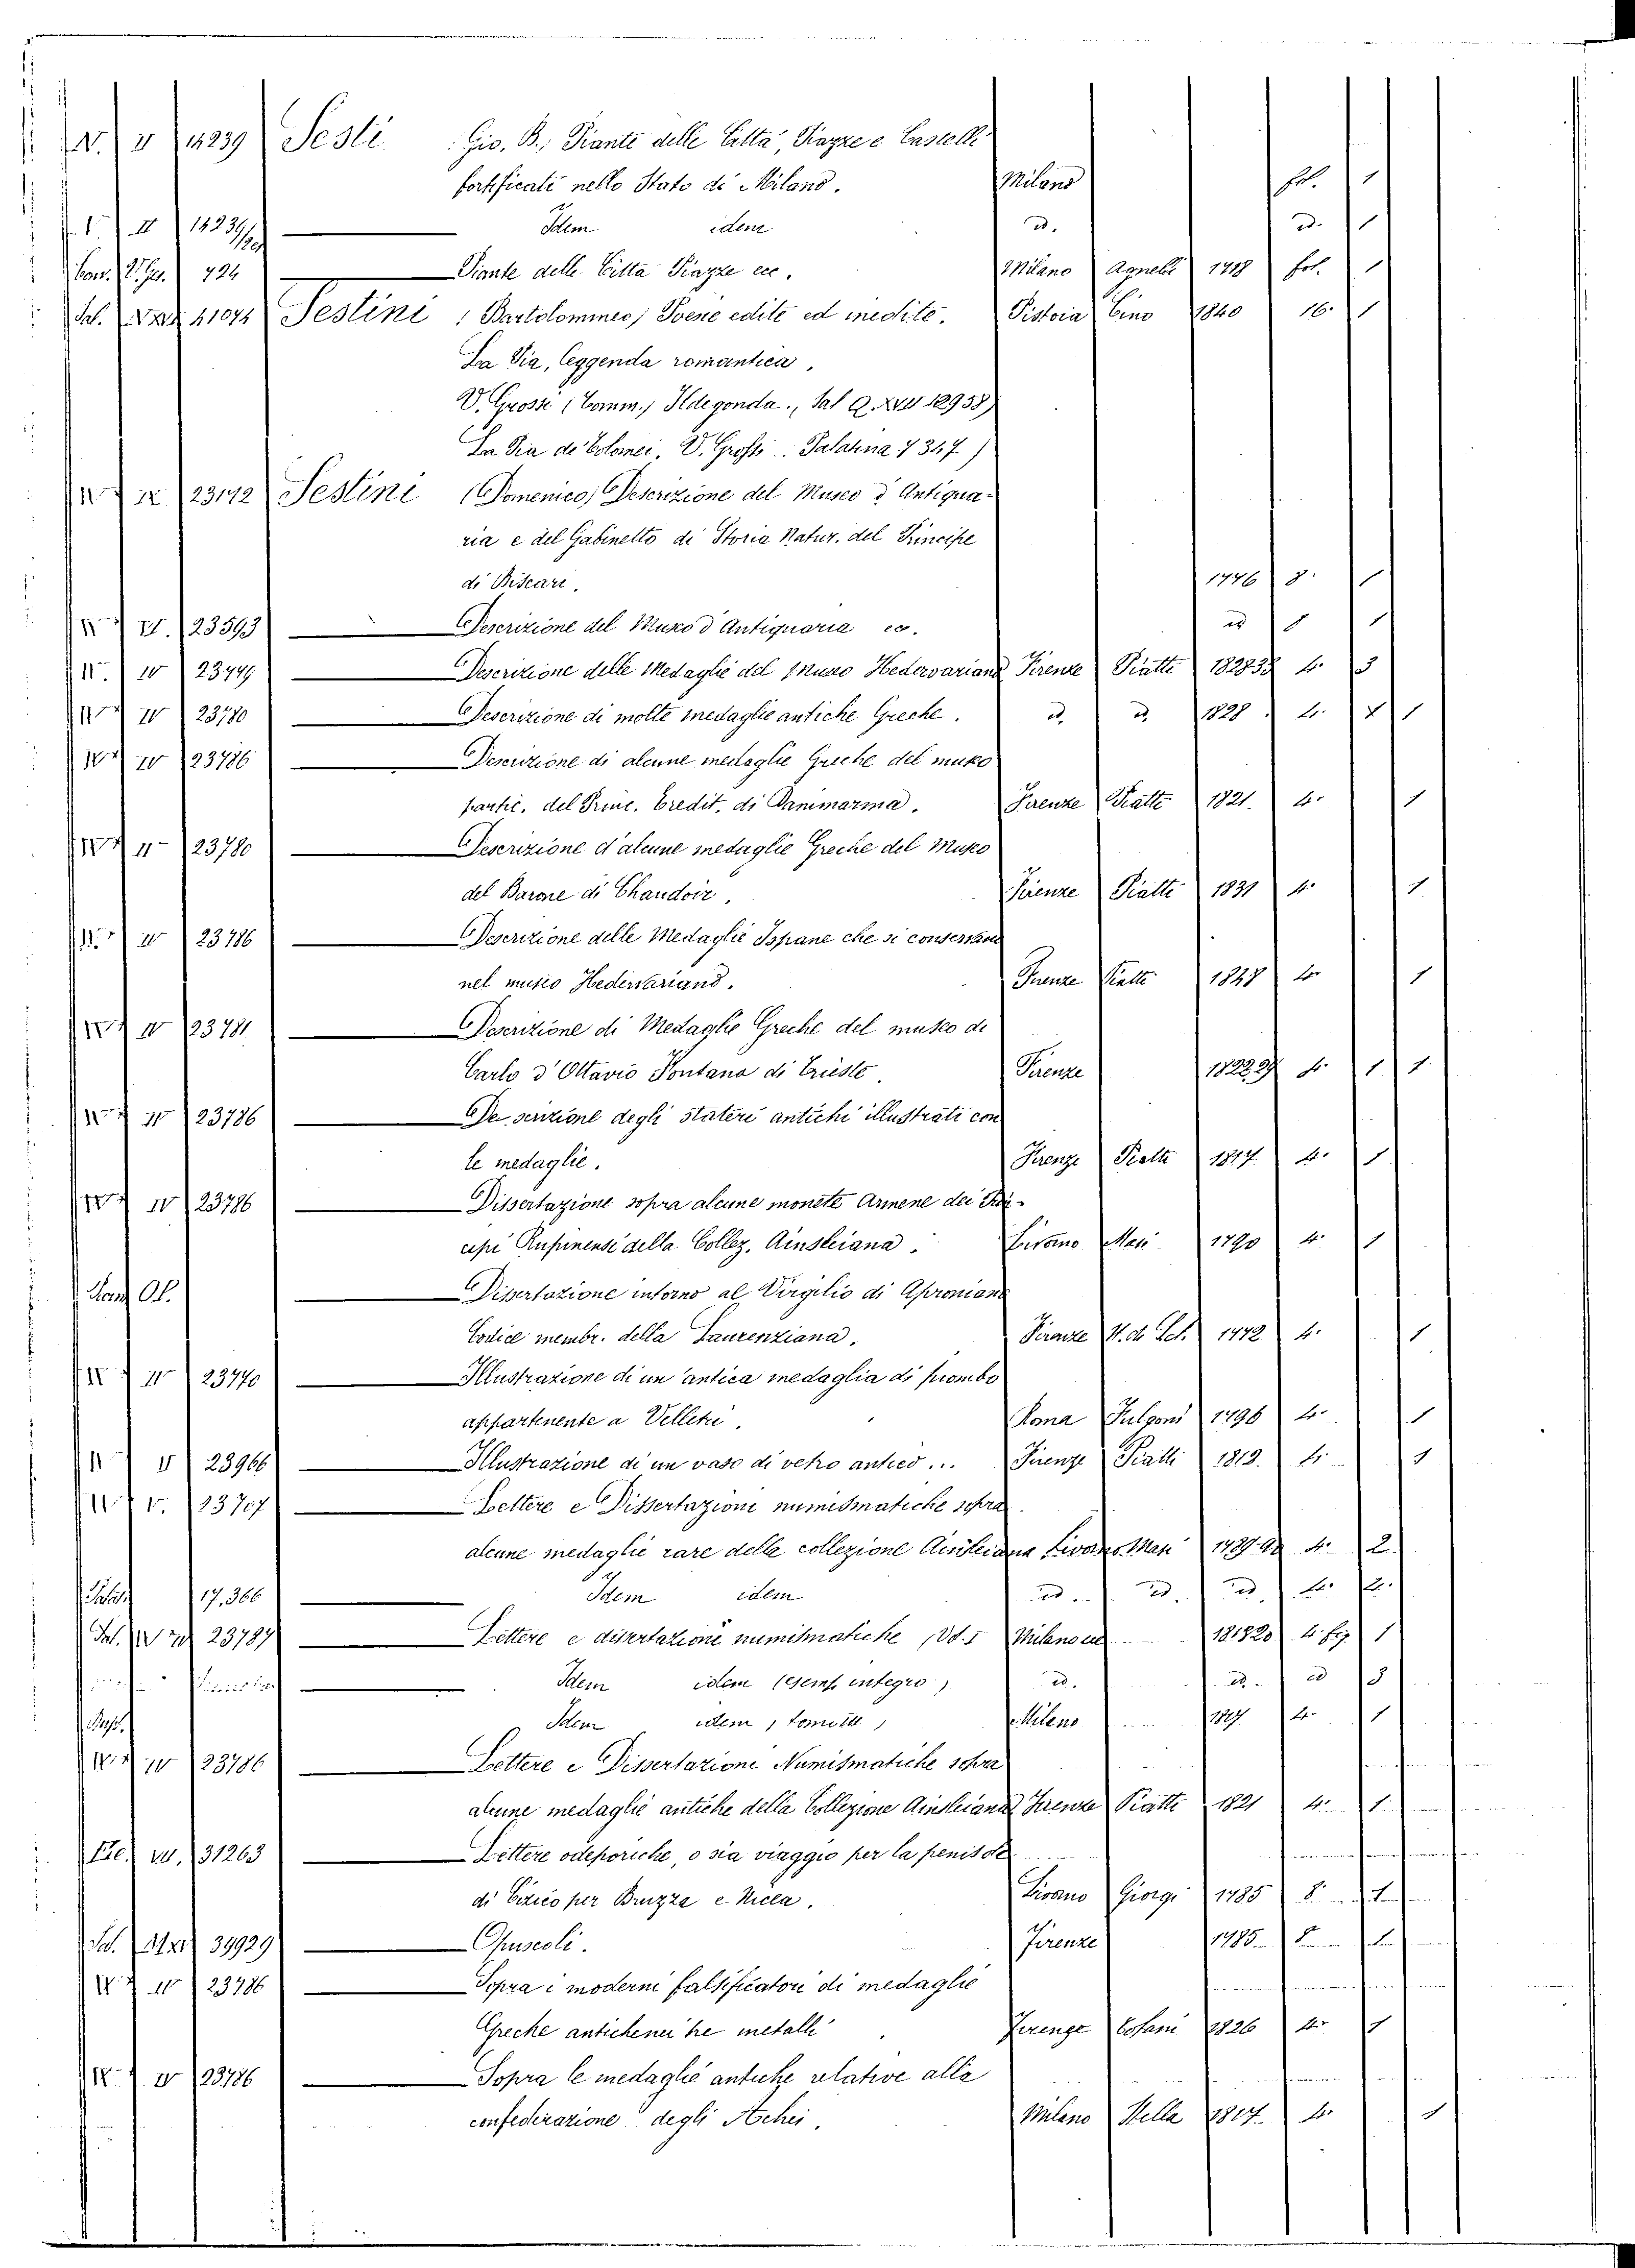 IV. V 14239 Sesti (Gio. B.) Piante delle Città, Piazze e Castelli
fortificati nello Stato di Milano. Milano fol. 1
V II 14239/ Idem idem id. id. 1
724 Piante delle Città Piazze ecc. Milano Agnelli 1718 fol. 1
41074 Sestini (Bartolommeo) Poesie edite ed inedite. Pistoia Cino 1840 16. 1
La Pia, leggenda romantica,
V. Grossi (Tomm.) Ildegonda., Sal Q. XVII 12958)
La Pia de' Tolomei, V. Grossi. Palatina 7347)
23142 Sestini (Domenico) Descrizione del Museo d'Antiqua-
ria e del Gabinetto di Storia Natur. del Principe
di Biscari. 1776 8. 1
23593 Descrizione del Museo d'Antiquaria ec. id 8 1
IV 23779 Descrizione delle Medaglie del Museo Hedervariano Firenze Piatti 1828 4. 3
IV 23780 Descrizione di molte medaglie antiche Greche. id. id. 1828 4. 1
IV 23786 Descrizione di alcune medaglie Greche del museo
partic. del Princ. Eredit. di Danimarma. Firenze Piatti 1821. 4. 1
23780 Descrizione d'alcune medaglie Greche del Museo
del Barone di Chaudoir, Firenze Piatti 1831 4. 1
IV 23786 Descrizione delle Medaglie Ispane che si conservano
nel museo Hedervariano. Firenze Piatti 4. 1
IV 23781. Descrizione di Medaglie Greche del museo di
Carlo d'Ottavio Fontana di Trieste. Firenze 1822.29 4. 1 1
IV 23786 Descrizione degli stateri antichi illustrati con
le medaglie. Firenze Piatti 1817 4. 1
IV 23786 Dissertazione sopra alcune monete Armene dei Prin-
cipi Rupinensi della Collez. Ainsleiana. Livorno Masi 1790 4. 1
Dissertazione intorno al Virgilio di Aproniano
Codice membr. della Laurenziana. Firenze 4. 1
23770 Illustrazione di un'antica medaglia di piombo
appartenente a Velletri. Roma Fulgoni 1796 4. 1
V 23966 Illustrazione di un vaso di vetro antico... Firenze Piatti 1812. 4. 1
V. 23707 Lettere e Dissertazioni numismatiche sopra
alcune medaglie rare della collezione Ainsleiana Livorno Masi 4. 2
Palat. 17,366 Idem idem id. id. id. 4. 2.
23787 Lettere e dissertazioni numismatiche, Vol. I Milano ec 1818.20 4. fig. 1
Idem idem (esemp. integro) id. id. id 3
Idem idem, tomo III, Milano 1817 4. 1
IV 23786 Lettere e Dissertazioni Numismatiche sopra
alcune medaglie antiche della Collezione Ainsleiana Firenze Piatti 1821 4. 1
31263 Lettere odeporiche, o sia viaggio per la penisola
di Cizico per Bruzza e Nicea. Livorno Giorgi 1785 8. 1
39929 Opuscoli. Firenze 1785. 8. 1
23786 Sopra i moderni falsificatori di medaglie
Greche antiche nei tre metalli Firenze Tofani 1826 4. 1
IV 23786 Sopra le medaglie antiche relative alla
confederazione degli Achei. Milano Stella 1817. 4. 1